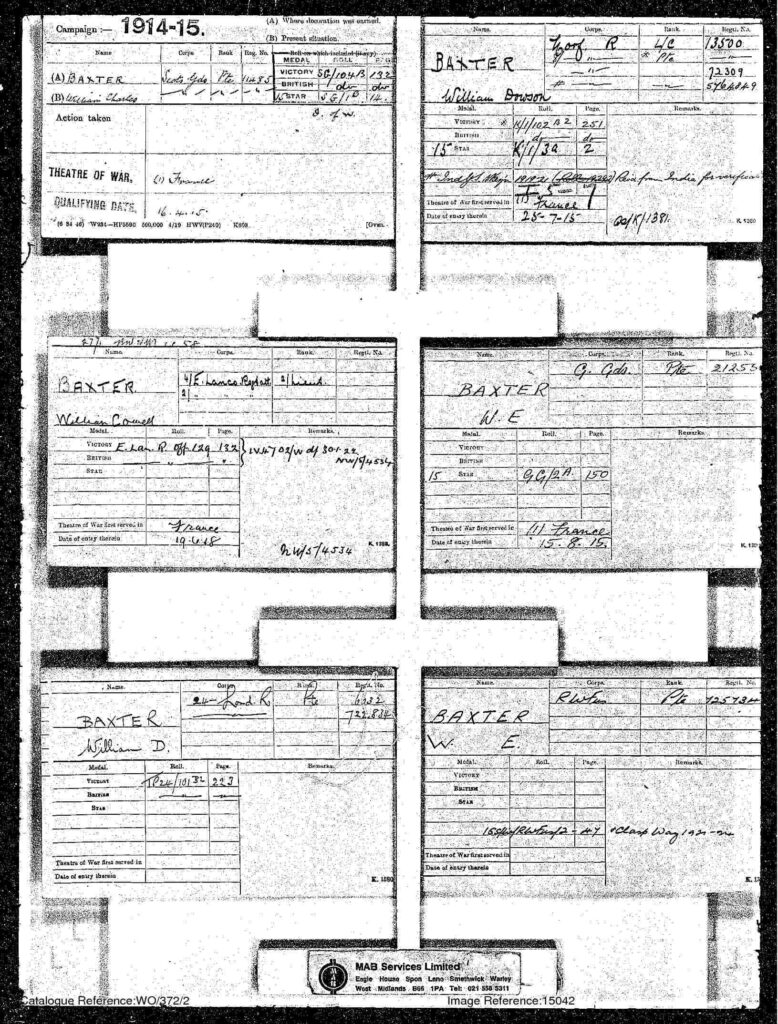 Campaign :— 1914-15.
(A) Where decoration was earned.
(B) Present situation.
Name Corps Rank Reg. No. Roll on which included (if any)
MEDAL ROLL PAGE
(A) BAXTER Scots Gds Pte 11485 VICTORY SG/104B 132
BRITISH do do
(B) William Charles STAR SG/1B 14.
Action taken D. of W.
THEATRE OF WAR. (1) France
QUALIFYING DATE. 16.4.15.
(6 34 46) W234—HP5590 500,000 4/19 HWV(P240) K608. [Over.
Name. Corps. Rank. Regtl. No.
BAXTER R L/C 13500
" Pte "
" 72309
William Dowson " 5764849
Medal. Roll. Page. Remarks.
VICTORY K/1/102 B2 251
BRITISH do do
15 STAR K/1/3A 2
from India for
Theatre of War first served in (1) France
Date of entry therein 25-7-15
K. 1380
Name. Corps. Rank. Regtl. No.
BAXTER 4/E. Lancs 2/Lieut.
2/ "
William
Medal. Roll. Page. Remarks.
VICTORY E. Lan. R. Off 129 132
BRITISH " " NW/5/4534
STAR
Theatre of War first served in France
Date of entry therein 19.6.18
K. 1380.
NW/5/4534
Name. Corps. Rank. Regtl. No.
G. Gds. Pte 21253
BAXTER
W. E
Medal. Roll. Page. Remarks.
VICTORY
BRITISH
15 STAR GG/2A. 150
Theatre of War first served in (1) France
Date of entry therein 15.8.15.
Name. Corps. Rank. Regtl. No.
24- Lond R Pte 6332
722834
BAXTER
William D.
Medal. Roll. Page. Remarks.
VICTORY TP24/101B2 223
BRITISH " "
STAR
Theatre of War first served in
Date of entry therein
K. 1380
Name. Corps. Rank. Regtl. No.
RWFus Pte
BAXTER
W. E.
Medal. Roll. Page. Remarks.
VICTORY
BRITISH
STAR
Clasp
Theatre of War first served in
Date of entry therein
MAB Services Limited
Eagle House Spon Lane Smethwick Warley
West Midlands B66 1PA Tel: 021 558 5311
Catalogue Reference:WO/372/2
Image Reference:15042